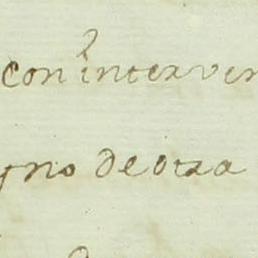 con interven
gno de otra